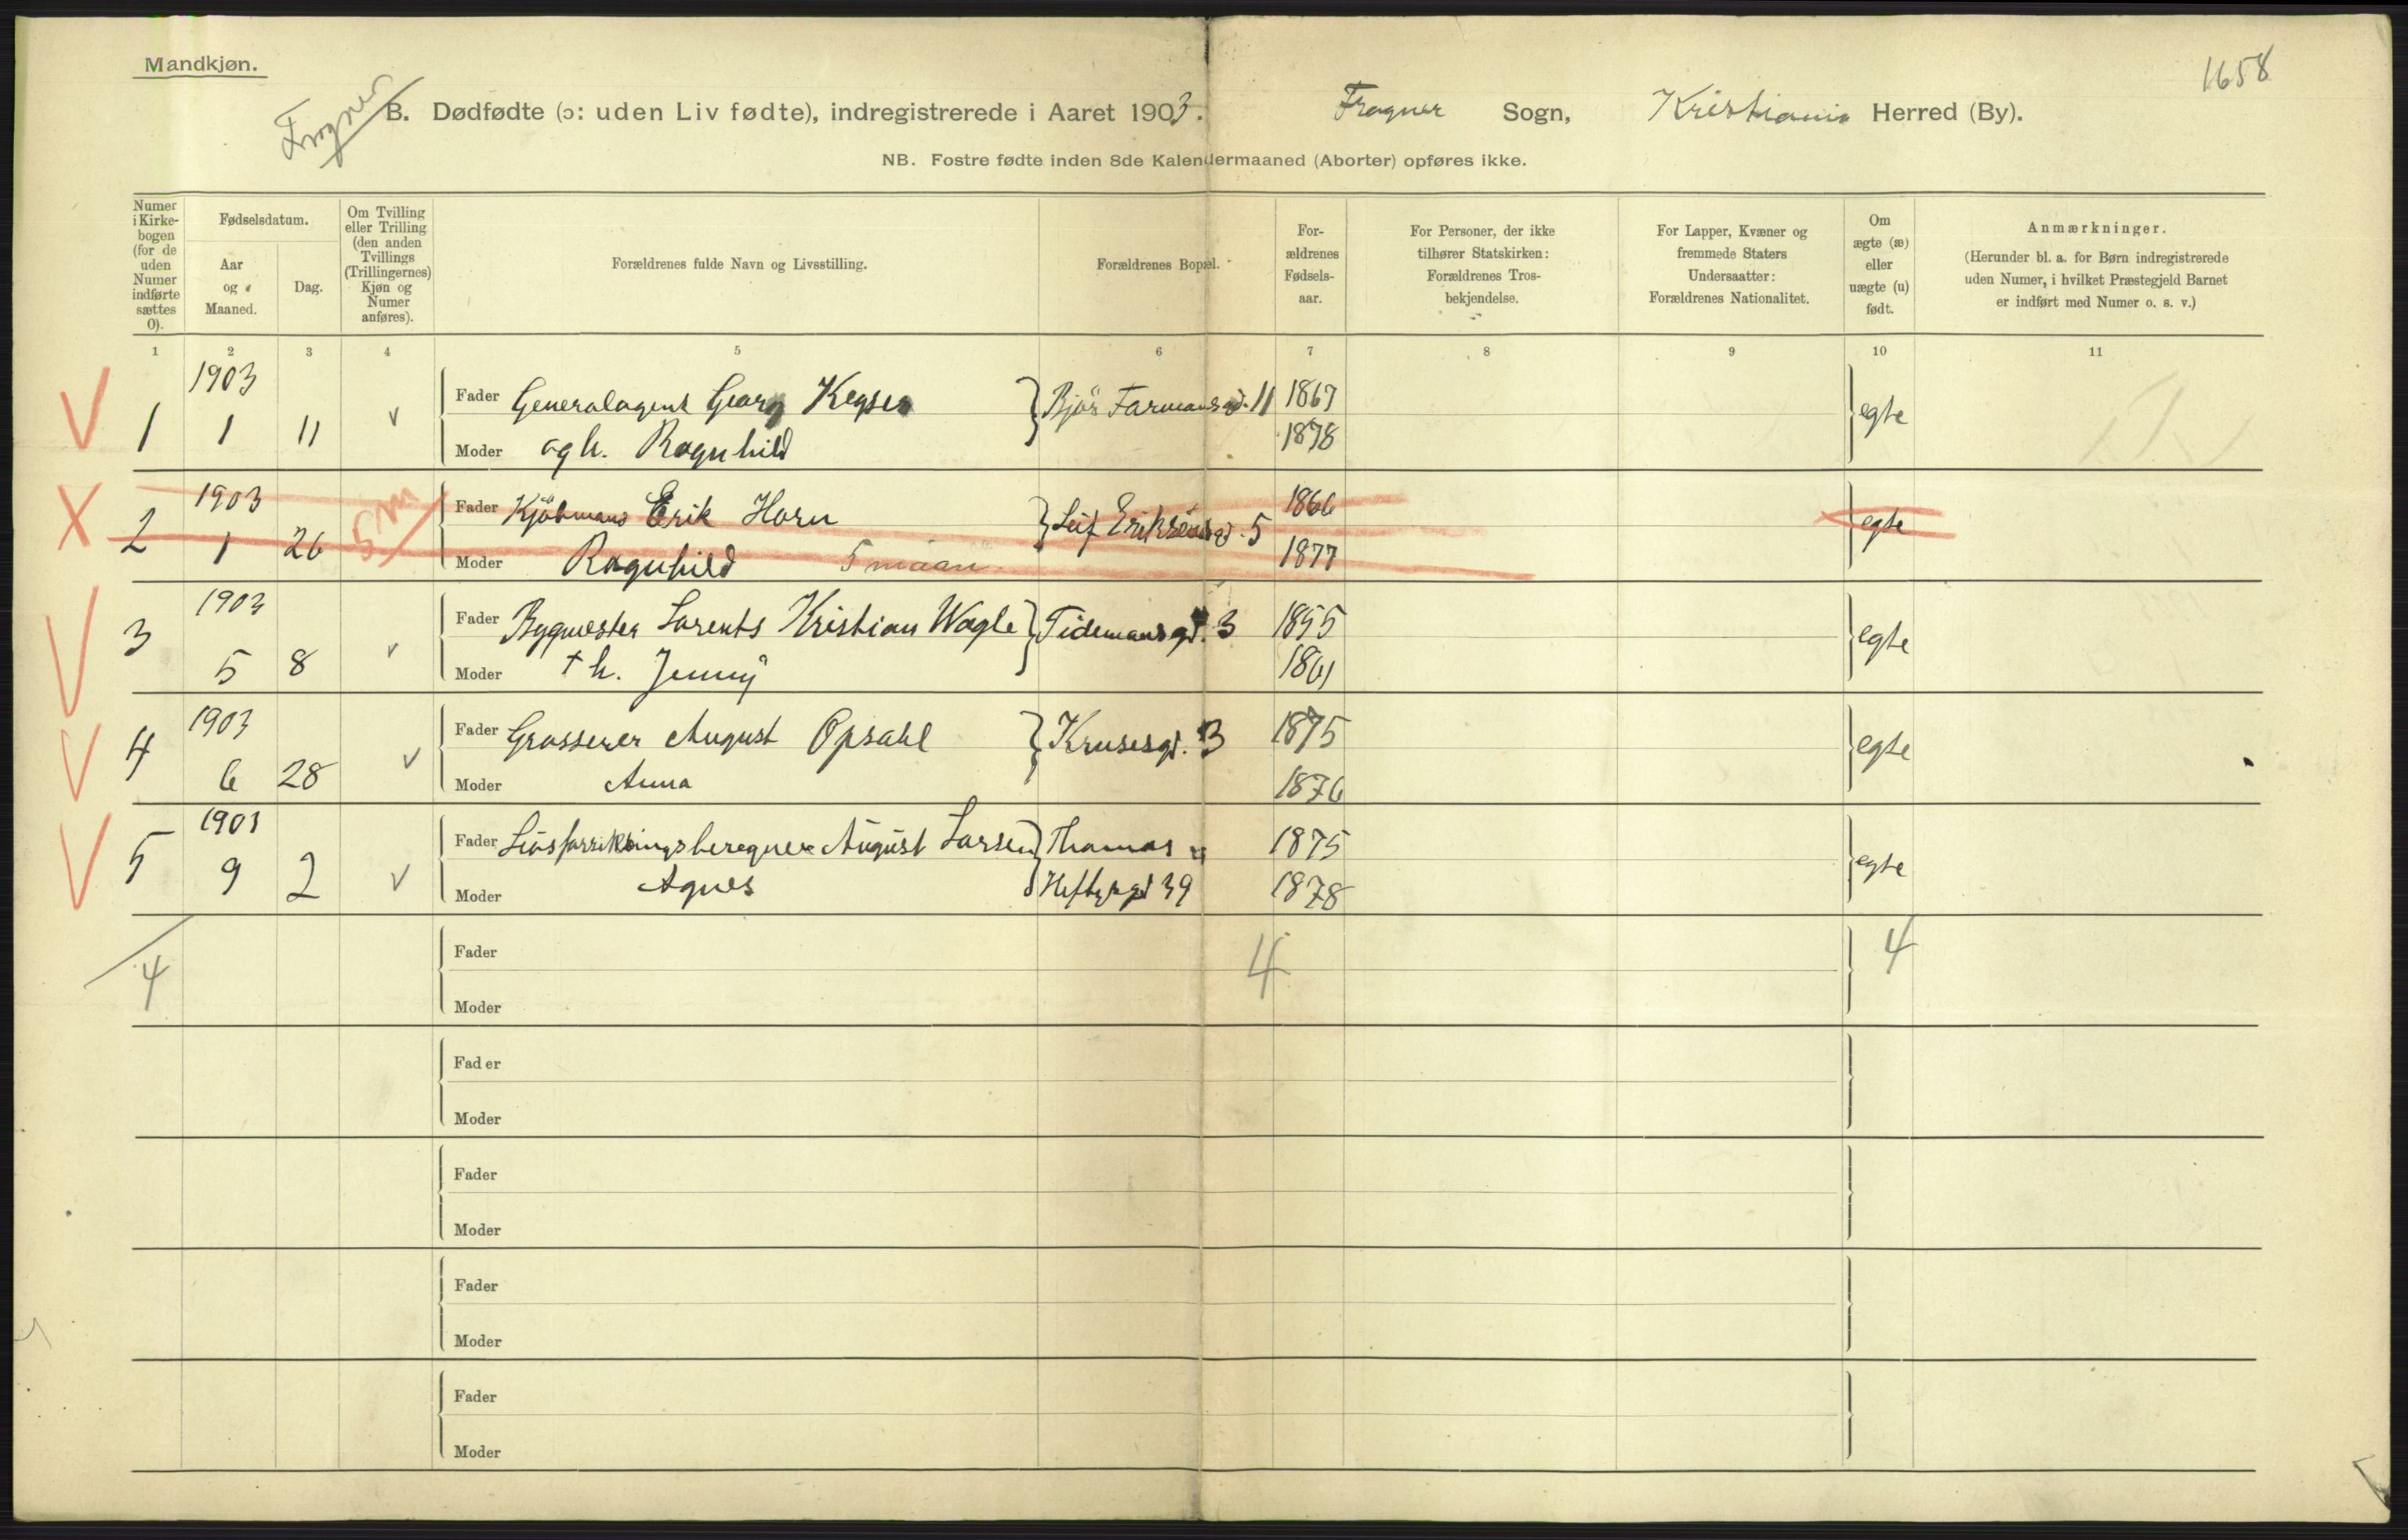 Mandkjøn.
1658
Frogner
B. Dødfødte (ɔ: uden Liv fødte), indregistrerede i Aaret 1903. Frogner Sogn, Kristiania Herred (By).
NB. Fostre fødte inden 8de Kalendermaaned (Aborter) opføres ikke.
Numer i Kirke-bogen (for de uden Numer indførte sættes 0).
Fødselsdatum.
Aar og Maaned.
Dag.
Om Tvilling eller Trilling (den anden Tvillings (Trillingernes) Kjøn og Numer anføres).
Forældrenes fulde Navn og Livsstilling.
Forældrenes Bopæl.
For-ældrenes Fødsels-aar.
For Personer, der ikke tilhører Statskirken: Forældrenes Tros-bekjendelse.
For Lapper, Kvæner og fremmede Staters Undersaatter: Forældrenes Nationalitet.
Om ægte (æ) eller uægte (u) født.
Anmærkninger.
(Herunder bl. a. for Børn indregistrerede uden Numer, i hvilket Præstegjeld Barnet er indført med Numer o. s. v.)
1 2 3 4 5 6 7 8 9 10 11
1903
V 1 1 11 v Fader Generalagent Georg Keyser Bjør Farmansgd. 11 1867 egte
Moder og h. Ragnhild 1878
1903
X 2 1 26 5 m Fader Kjøbmand Erik Horn Leif Erikssønsgd. 5 1866 egte
Moder Ragnhild 5 maan. 1877
1903
V 3 5 8 v Fader Bygmester Lorents Kristian Wagle Tidemansgd. 3 1855 egte
Moder + h. Jenny 1861
1903
V 4 6 28 v Fader Grosserer August Opsahl Krusesgd. 3 1875 egte
Moder Anna 1876
1903
V 5 9 2 v Fader August Larsen Thomas 1875 egte
Moder Agnes Heftyesgd 39 1878
4 Fader 4 4
Moder
Fader
Moder
Fader
Moder
Fader
Moder
Fader
Moder